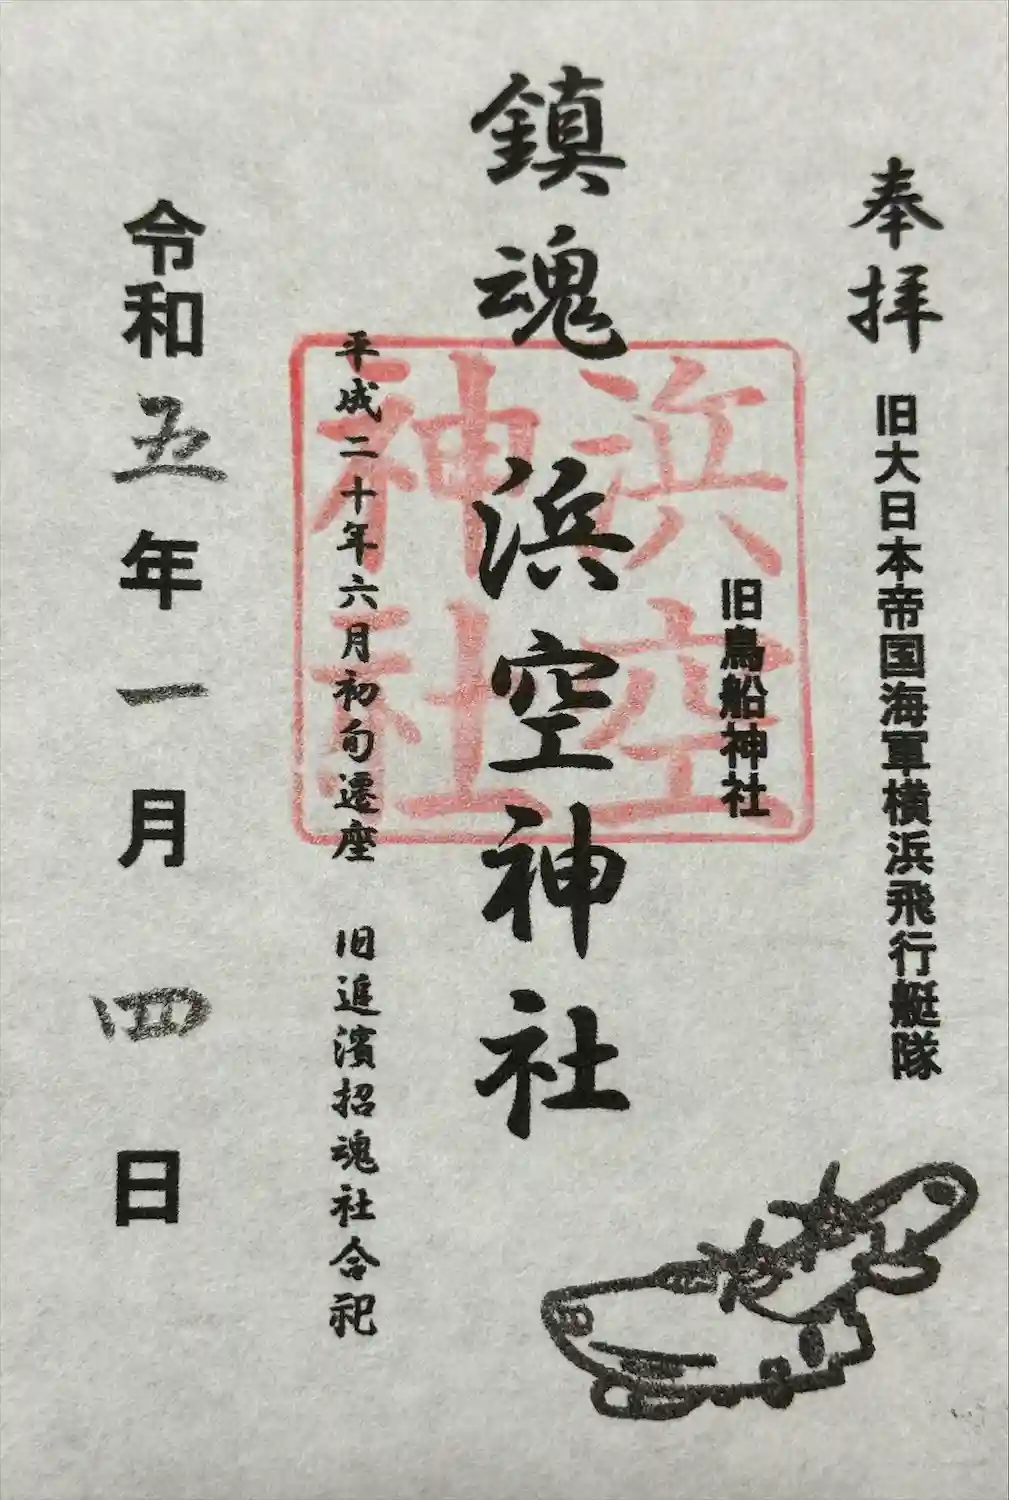 奉拝
旧大日本帝国海軍横浜飛行艇隊
旧鳥船神社
浜空
神社
鎮魂 浜空神社
平成二十年六月初旬遷座 旧追濱招魂社合祀
令和五年一月四日